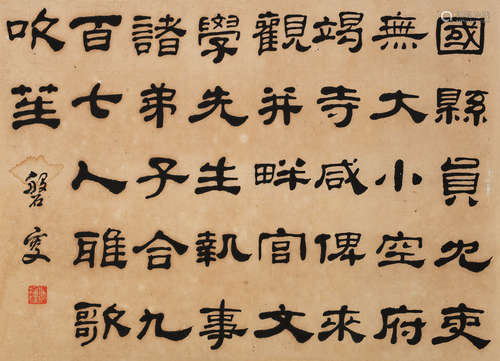 國縣員冗吏
無大小空府
竭寺咸俾來
觀并畔宮文
學先生執事
諸弟子合九
百七人雅歌
吹笙